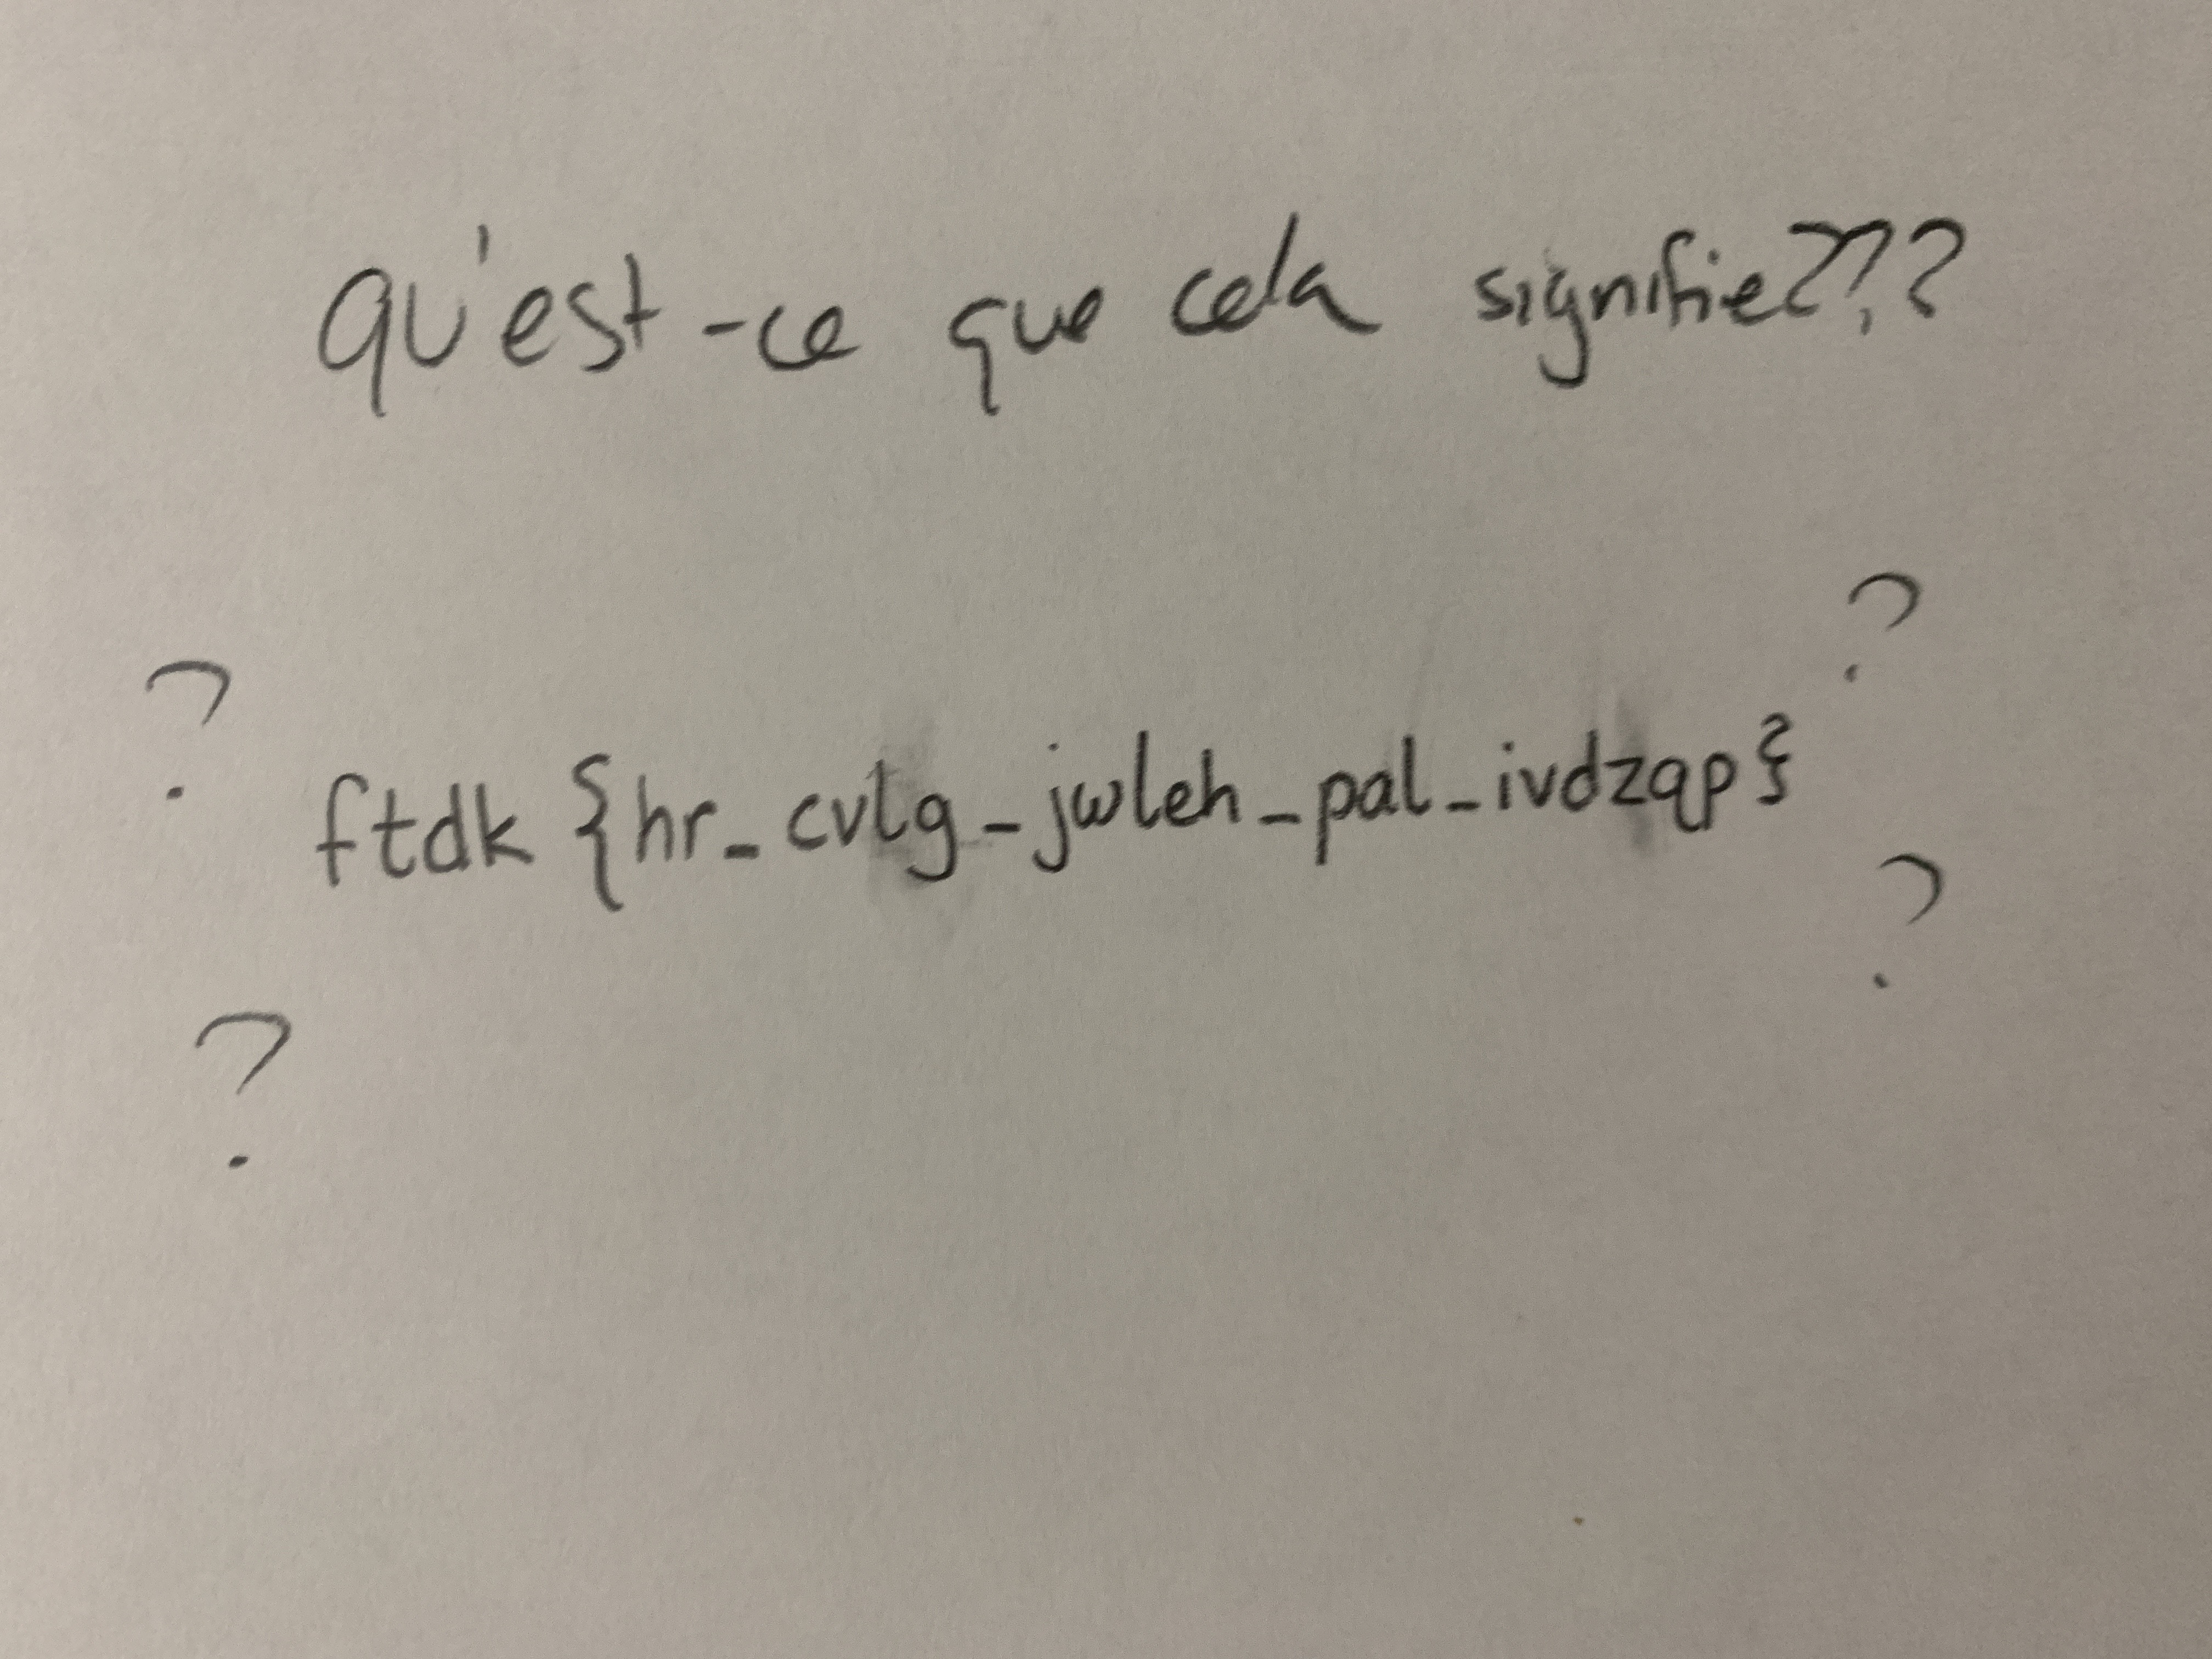 qu'est-ce que cela signifie???
?
?
ftdk{hr_cvlg_jwleh_pal_ivdzqp}
?
?